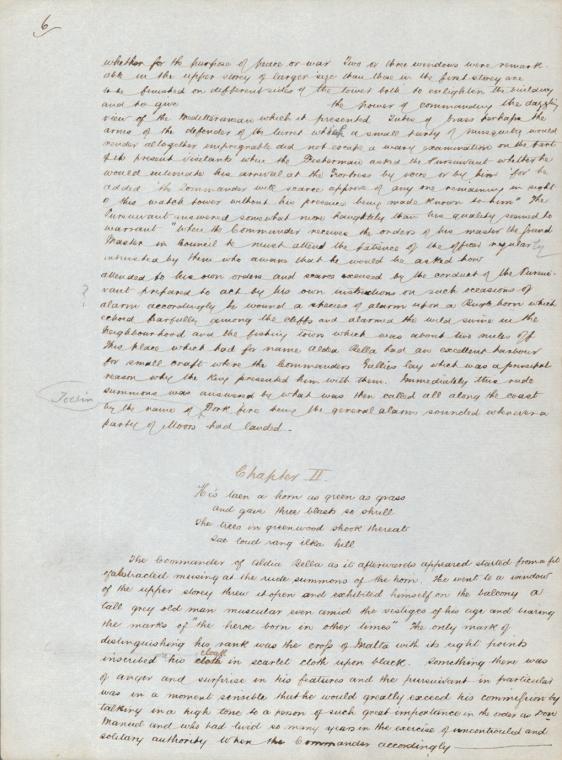 6
whether for the purpose of peace or war Two or three windows were remark-
able in the upper storey of larger size than those in the first storey are
to be furnished on different sides of the tower both to enlighten the building
and to give the power of commanding the dazzling
view of the Mediterranean which it presented Tubes of brass perhaps the
arms of the defender of the turret which a small party of musquetry would
render altogether impregnable did not escape a wary examination on the part
of its present visitants when the asked the Pursuivant whether he
would intimate his arrival at the Fortress by voice or by him for he
added "the Commander will scarce approve of any one remaining in sight
o this watch tower without his presence being made known to him" The
Pursuivant answered somewhat more haughtily than his quality seemed to
warrant "when the Commander receives the orders of his master the Grand
Master in Council he must attend the patience of the officer regularly
intrusted by them who awares that he would be asked how
attended to his own orders and scarce excused by the conduct of the Pursui-
vant prepared to act by his own instructions on such occasions of
?
alarm accordingly he wound a species of alarm upon a Bugle horn which
echoed fearfully among the cliffs and alarmed the wild swine in the
neighbourhood and the fishing town which was about two miles off
This place which had for name Aldea Bella had an excellent harbour
for small craft where the Commanders Gallies lay which was a principal
reason why the King presented them with them. Immediately this rude
Tocsin
summons was answered by what was then called all along the coast
by the name of Dork fire being the general alarm sounded whenever a
party of Moors had landed.
Chapter II
He's taen a horn as green as grass
and gave three blasts so shrill
The trees in greenwood shook thereat
Sae loud rang ilka hill
The Commander of Aldea Bella as it afterwards appeared started from a fit
of abstracted musing at the rude summons of the horn. He went to a window
of the upper storey threw it open and exhibited himself on the balcony a
tall grey old man muscular even amid the vestiges of his age and bearing
the marks of "the heroe born in other times" The only mark of
distinguishing his rank was the cross of Malta with its eight points
cloak
inscribed his cloth in scarlet cloth upon black. Something there was
of anger and surprise in his features and the pursuivant in particular
was in a moment sensible that he would greatly exceed his commission by
talking in a high tone to a person of such great importance in the order as Don
Manuel and who had lived so many years in the exercise of uncontrouled and
solitary authority When the Commander accordingly